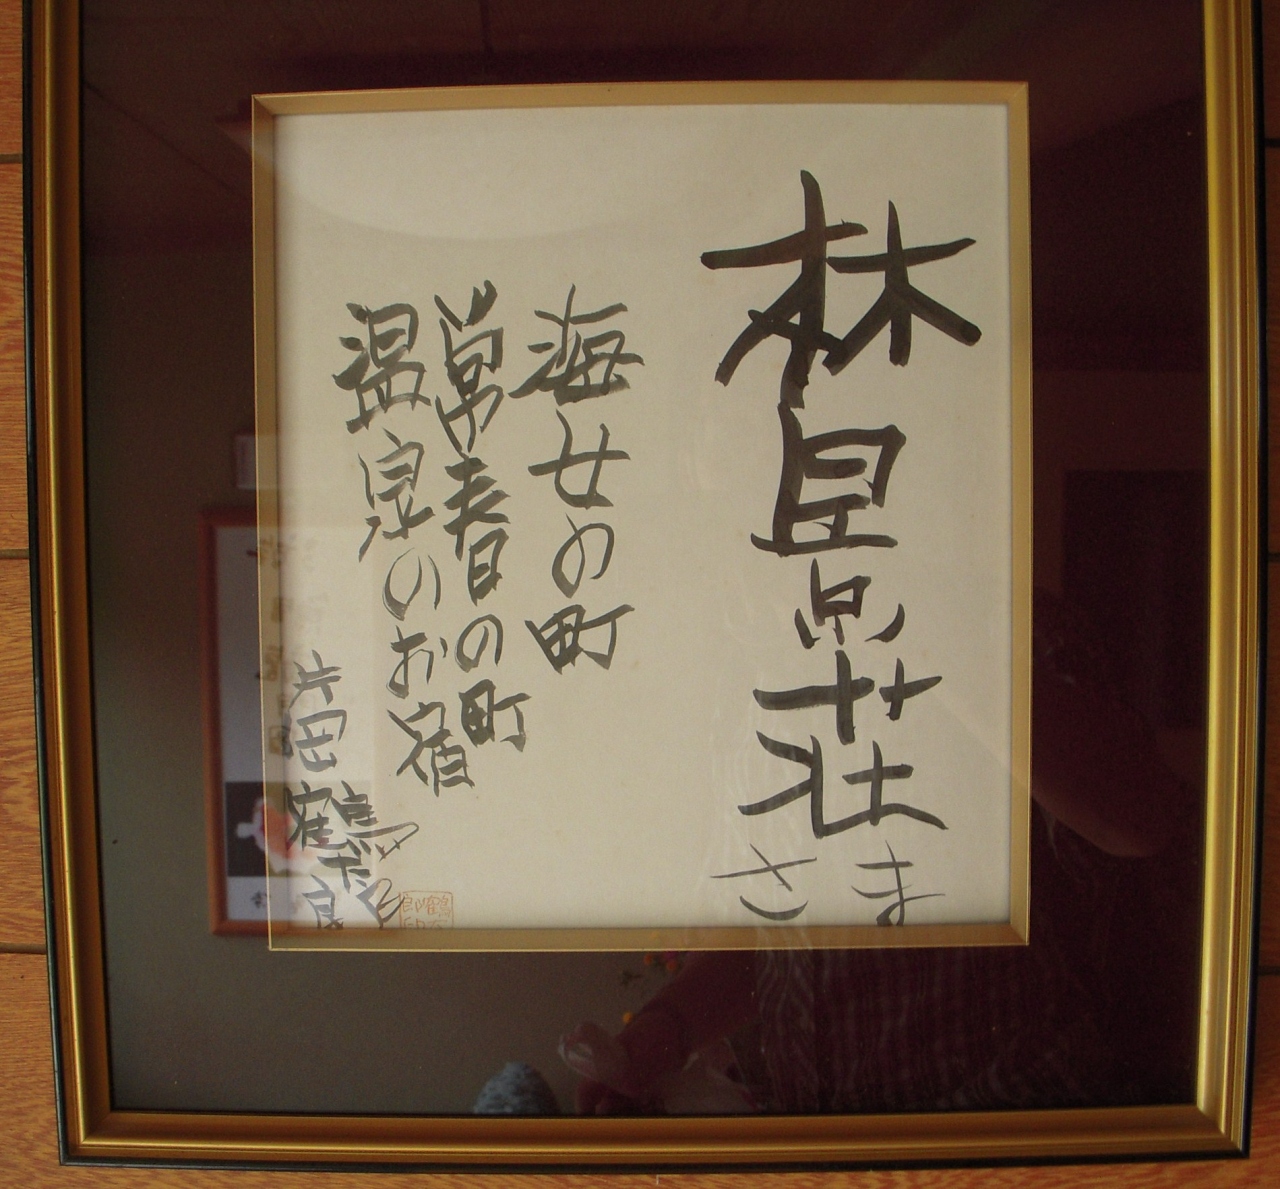 林景荘
さま
海女の町
常春の町
温泉のお宿
片岡鶴太郎